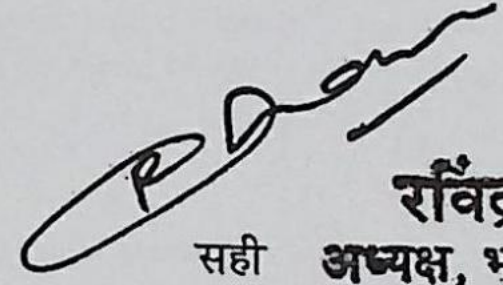 रविंद्र
सही अध्यक्ष, भ